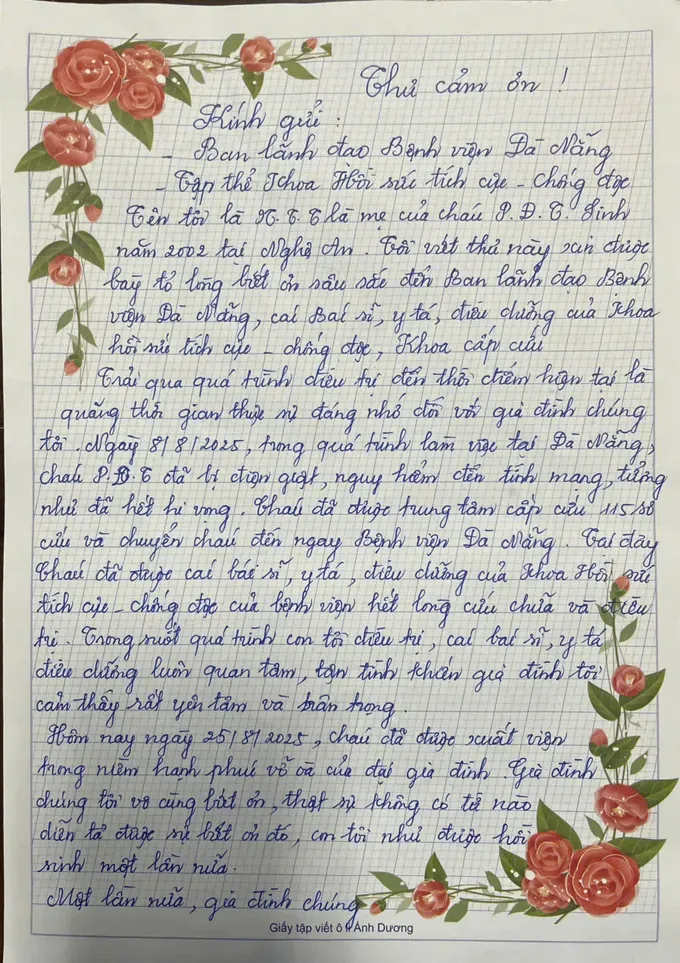 Thư cảm ơn !
Kính gửi :
- Ban lãnh đạo Bệnh viện Đà Nẵng
- Tập thể Khoa Hồi sức tích cực - chống độc
Tên tôi là N.T.T là mẹ của cháu P.Đ.T. Sinh
năm 2002 tại Nghệ An. Tôi viết thư này xin được
bày tỏ lòng biết ơn sâu sắc đến Ban lãnh đạo Bệnh
viện Đà Nẵng, các Bác sĩ, y tá, điều dưỡng của Khoa
hồi sức tích cực - chống độc, Khoa cấp cứu
Trải qua quá trình điều trị đến thời điểm hiện tại là
quãng thời gian thực sự đáng nhớ đối với gia đình chúng
tôi. Ngày 8/8/2025, trong quá trình làm việc tại Đà Nẵng,
cháu P.Đ.T đã bị điện giật, nguy hiểm đến tính mạng, tưởng
như đã hết hi vọng. Cháu đã được trung tâm cấp cứu 115 sơ
cứu và chuyển cháu đến ngay Bệnh viện Đà Nẵng. Tại đây
Cháu đã được các bác sĩ, y tá, điều dưỡng của Khoa Hồi sức
tích cực - chống độc của bệnh viện hết lòng cứu chữa và điều
trị. Trong suốt quá trình con tôi điều trị, các bác sĩ, y tá
điều dưỡng luôn quan tâm, tận tình khiến gia đình tôi
cảm thấy rất yên tâm và trân trọng.
Hôm nay ngày 25/8/2025, cháu đã được xuất viện
trong niềm hạnh phúc vỡ oà của đại gia đình. Gia đình
chúng tôi vô cùng biết ơn, thật sự không có từ nào
diễn tả được sự biết ơn đó, con tôi như được hồi
sinh một lần nữa.
Một lần nữa, gia đình chúng
Giấy tập viết ô li Ánh Dương